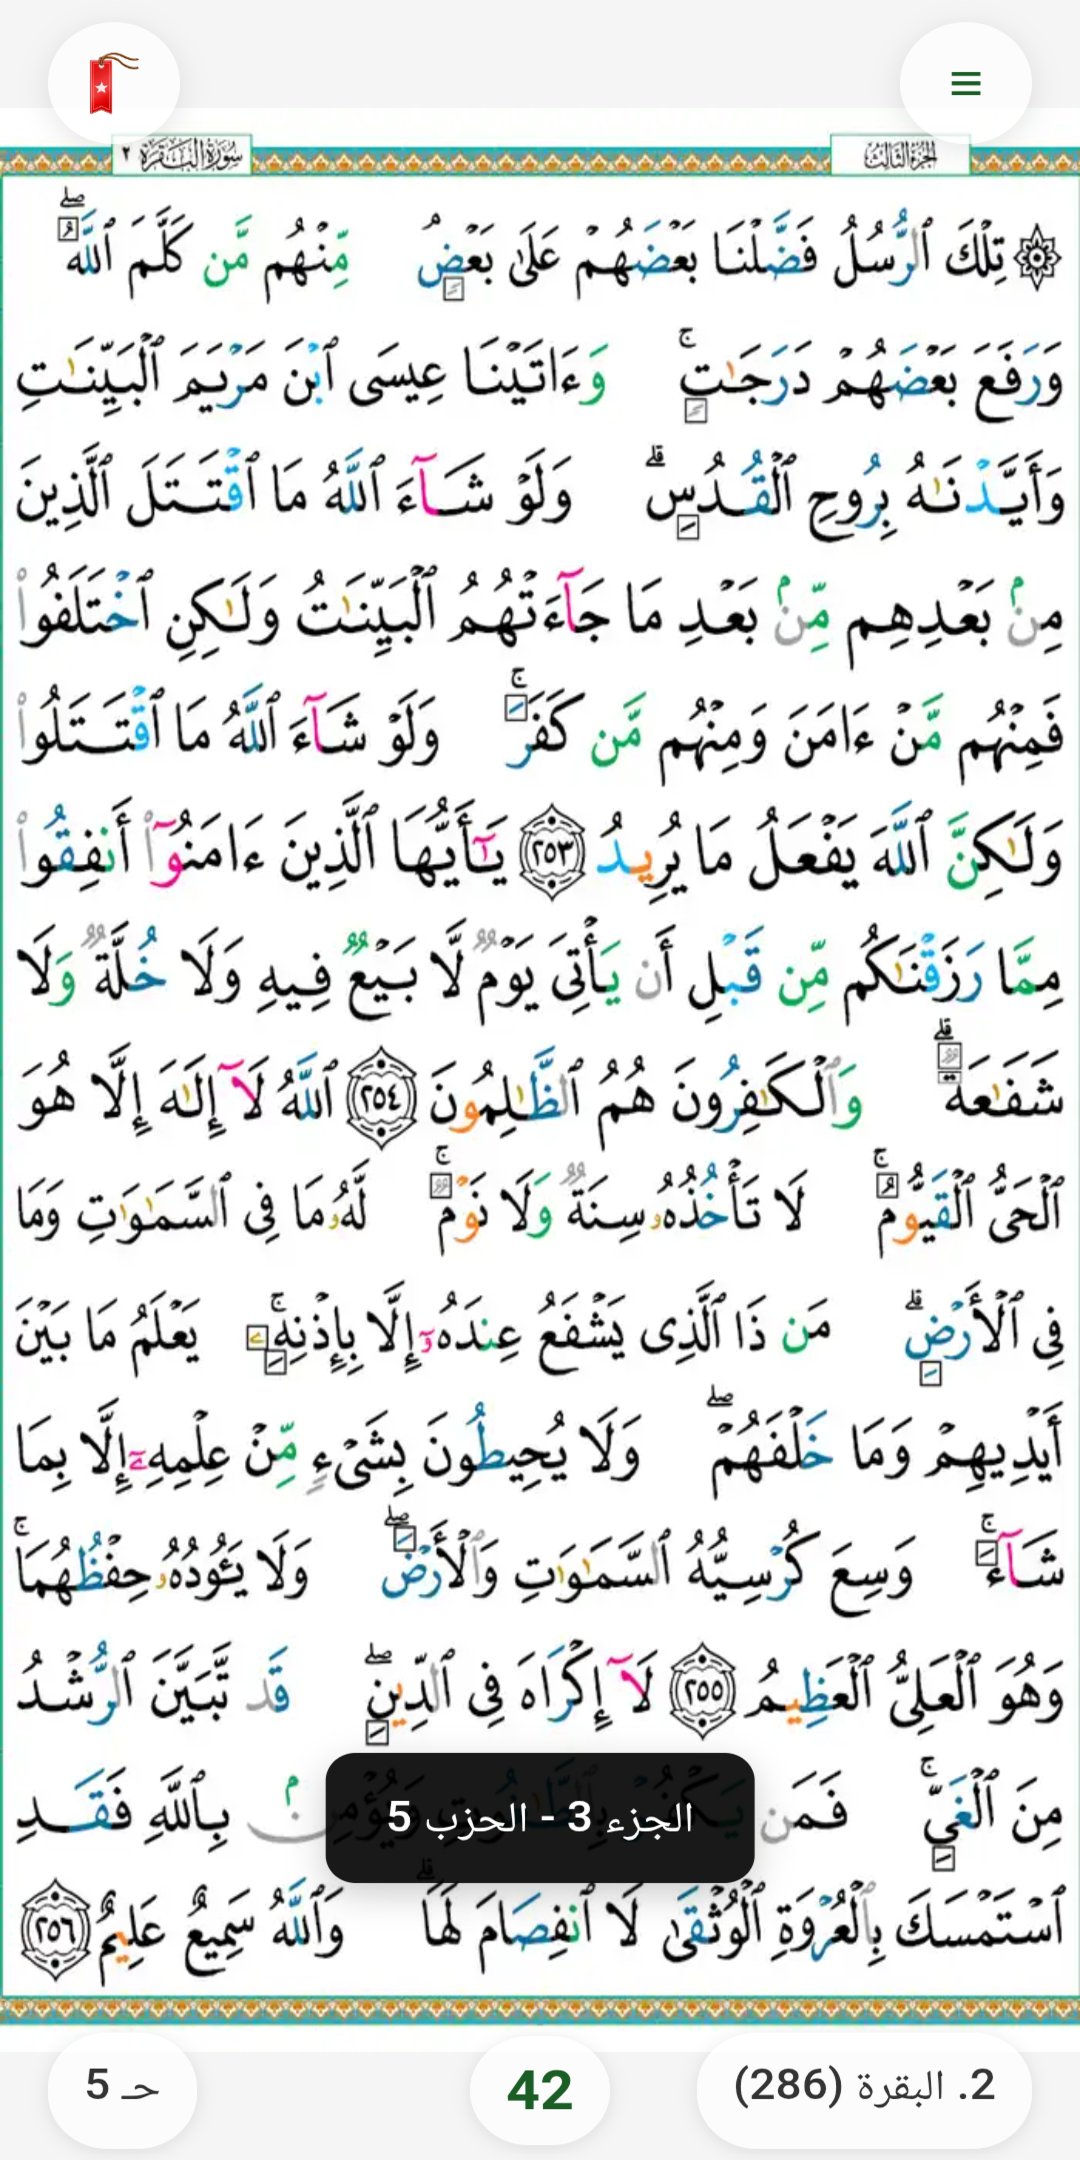 الجزء الثالث
سورة البقرة ٢
۞ تِلْكَ ٱلرُّسُلُ فَضَّلْنَا بَعْضَهُمْ عَلَىٰ بَعْضٍۘ مِّنْهُم مَّن كَلَّمَ ٱللَّهُۖ
وَرَفَعَ بَعْضَهُمْ دَرَجَـٰتٍۚ وَءَاتَيْنَا عِيسَى ٱبْنَ مَرْيَمَ ٱلْبَيِّنَـٰتِ
وَأَيَّدْنَـٰهُ بِرُوحِ ٱلْقُدُسِۗ وَلَوْ شَآءَ ٱللَّهُ مَا ٱقْتَتَلَ ٱلَّذِينَ
مِنۢ بَعْدِهِم مِّنۢ بَعْدِ مَا جَآءَتْهُمُ ٱلْبَيِّنَـٰتُ وَلَـٰكِنِ ٱخْتَلَفُوا۟
فَمِنْهُم مَّنْ ءَامَنَ وَمِنْهُم مَّن كَفَرَۚ وَلَوْ شَآءَ ٱللَّهُ مَا ٱقْتَتَلُوا۟
وَلَـٰكِنَّ ٱللَّهَ يَفْعَلُ مَا يُرِيدُ ٢٥٣ يَـٰٓأَيُّهَا ٱلَّذِينَ ءَامَنُوٓا۟ أَنفِقُوا۟
مِمَّا رَزَقْنَـٰكُم مِّن قَبْلِ أَن يَأْتِىَ يَوْمٌ لَّا بَيْعٌ فِيهِ وَلَا خُلَّةٌ وَلَا
شَفَـٰعَةٌۗ وَٱلْكَـٰفِرُونَ هُمُ ٱلظَّـٰلِمُونَ ٢٥٤ ٱللَّهُ لَآ إِلَـٰهَ إِلَّا هُوَ
ٱلْحَىُّ ٱلْقَيُّومُۚ لَا تَأْخُذُهُۥ سِنَةٌ وَلَا نَوْمٌۚ لَّهُۥ مَا فِى ٱلسَّمَـٰوَٰتِ وَمَا
فِى ٱلْأَرْضِۗ مَن ذَا ٱلَّذِى يَشْفَعُ عِندَهُۥٓ إِلَّا بِإِذْنِهِۦۚ يَعْلَمُ مَا بَيْنَ
أَيْدِيهِمْ وَمَا خَلْفَهُمْۖ وَلَا يُحِيطُونَ بِشَىْءٍ مِّنْ عِلْمِهِۦٓ إِلَّا بِمَا
شَآءَۚ وَسِعَ كُرْسِيُّهُ ٱلسَّمَـٰوَٰتِ وَٱلْأَرْضَۖ وَلَا يَـُٔودُهُۥ حِفْظُهُمَاۚ
وَهُوَ ٱلْعَلِىُّ ٱلْعَظِيمُ ٢٥٥ لَآ إِكْرَاهَ فِى ٱلدِّينِۖ قَد تَّبَيَّنَ ٱلرُّشْدُ
مِنَ ٱلْغَىِّۚ فَمَن يَكْفُرْ بِٱلطَّـٰغُوتِ وَيُؤْمِنۢ بِٱللَّهِ فَقَدِ
الجزء 3 - الحزب 5
ٱسْتَمْسَكَ بِٱلْعُرْوَةِ ٱلْوُثْقَىٰ لَا ٱنفِصَامَ لَهَاۗ وَٱللَّهُ سَمِيعٌ عَلِيمٌ ٢٥٦
2. البقرة (286)
42
حـ 5